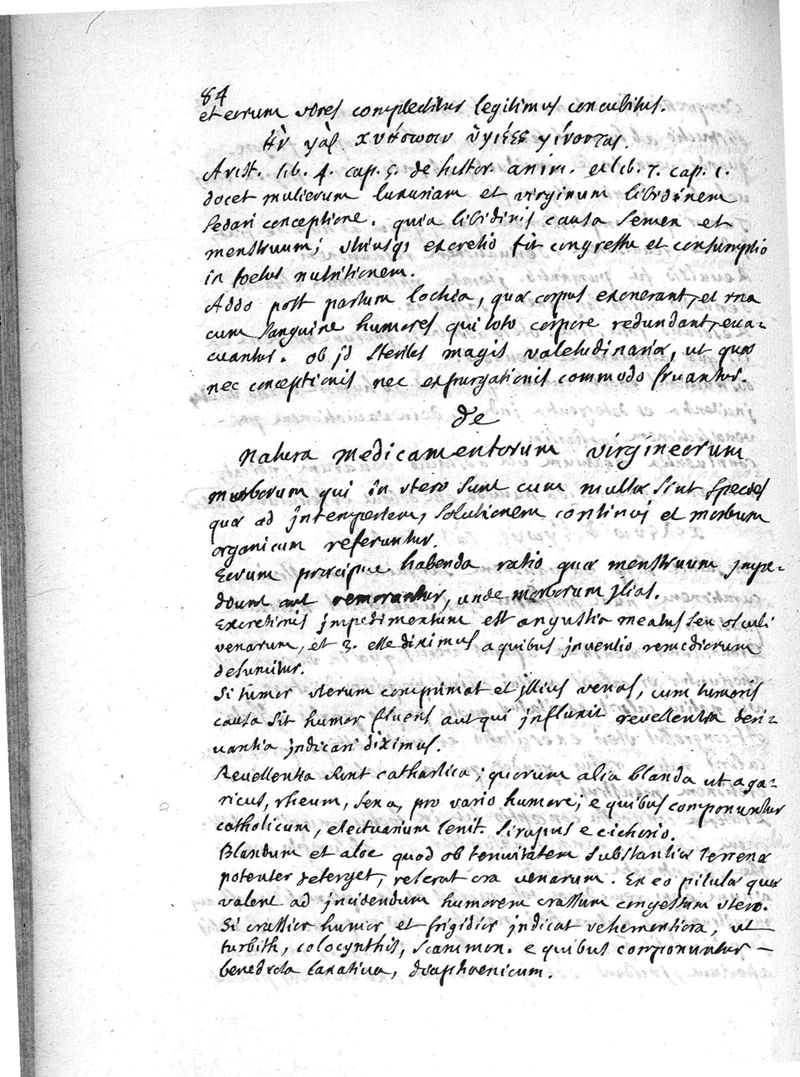 84
et earum vires complectitur legitimus concubitus.
Ἢν γὰρ κυήσωσιν ὑγιέες γίνονται.
Arist. lib. 4. cap. 5. de histor. anim. et lib. 7. cap. 1.
docet mulierum luxuriam et virginum libidinem
sedari conceptione. quia libidinis causa semen et
menstruum; utriusq; excretio fit congressu et consumptio
in foetus nutritionem.
Addo post partum lochia, quæ corpus exonerant, et una
cum sanguine humores qui toto corpore redundant, eua-
cuantur. ob id steriles magis valetudinariæ, ut quæ
nec conceptionis nec expurgationis commodo fruantur.
de
Natura medicamentorum virgineorum
morborum qui in utero sunt cum multæ sint species
quæ ad intemperiem, solutionem continui et morbum
organicum referuntur.
Eorum præcipue habenda ratio quæ menstruum impe-
diunt aut remorantur, unde morborum ilias.
Excretionis impedimentum est angustia meatus seu osculi
venarum, et 3. esse diximus a quibus inventio remediorum
desumitur.
Si tumor uterum comprimat et illius venas, cum tumoris
causa sit humor fluens aut qui influxit revellentia deri-
vantia indicari diximus.
Revellentia sunt cathartica; quorum alia blanda ut aga-
ricus, rheum, sena, pro vario humore; e quibus componuntur
catholicum, electuarium lenit. sirupus e cichorio.
Blandum et aloe quod ob tenuitatem substantiæ terrenæ
potenter deterget, reserat ora venarum. Ex eo pilulæ quæ
valent ad incidendum humorem crassum congestum utero.
Si crassior humor et frigidior indicat vehementiora, ut
turbith, colocynthis, scammon. e quibus componuntur —
benedicta laxativa, diaphoenicum.